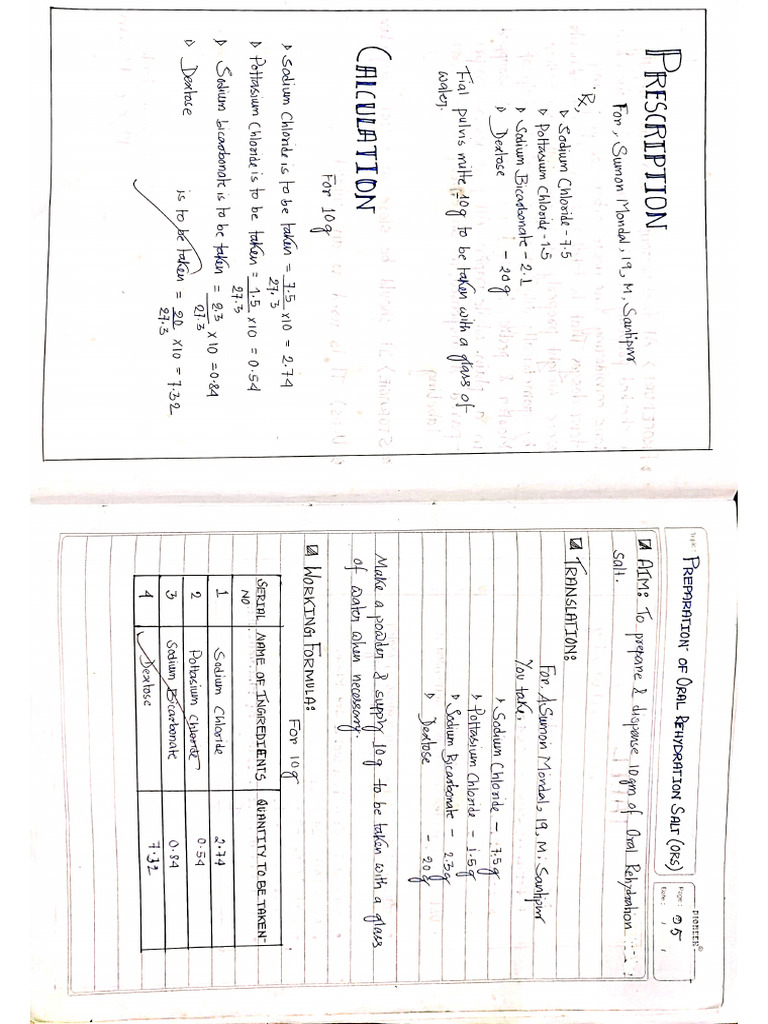 PRESCRIPTION
For, Sumon Mondal, 19, M, Santipur
Rx,
Sodium Chloride - 7.5
Pottasium Chloride - 1.5
Sodium Bicarbonate - 2.1
Dextose - 20g
Fial pulvis mitte 10g to be taken with a glass of
water.
CALCULATION
For 10g
Sodium Chloride is to be taken = 7.5/27.3 x10 = 2.74
Pottasium Chloride is to be taken = 1.5/27.3 x10 = 0.54
Sodium bicarbonate is to be taken = 2.3/27.3 x10 = 0.84
Dextose is to be taken = 20/27.3 x10 = 7.32
PIONEER®
Topic: PREPARATION OF ORAL REHYDRATION SALT (ORS)
Page: 05
Date:
AIM: To prepare & dispense 10gm of Oral Rehydration
salt.
TRANSLATION:
For, Sumon Mondal, 19, M, Santipur
You take,
Sodium Chloride - 7.5g
Pottasium Chloride - 1.5g
Sodium Bicarbonate - 2.3g
Dextose - 20g
Make a powder & supply 10g to be taken with a glass
of water when necessary.
WORKING FORMULA:
For 10g
SERIAL NO NAME OF INGREDIENTS QUANTITY TO BE TAKEN
1 Sodium Chloride 2.74
2 Pottasium Chloride 0.54
3 Sodium Bicarbonate 0.84
4 Dextose 7.32